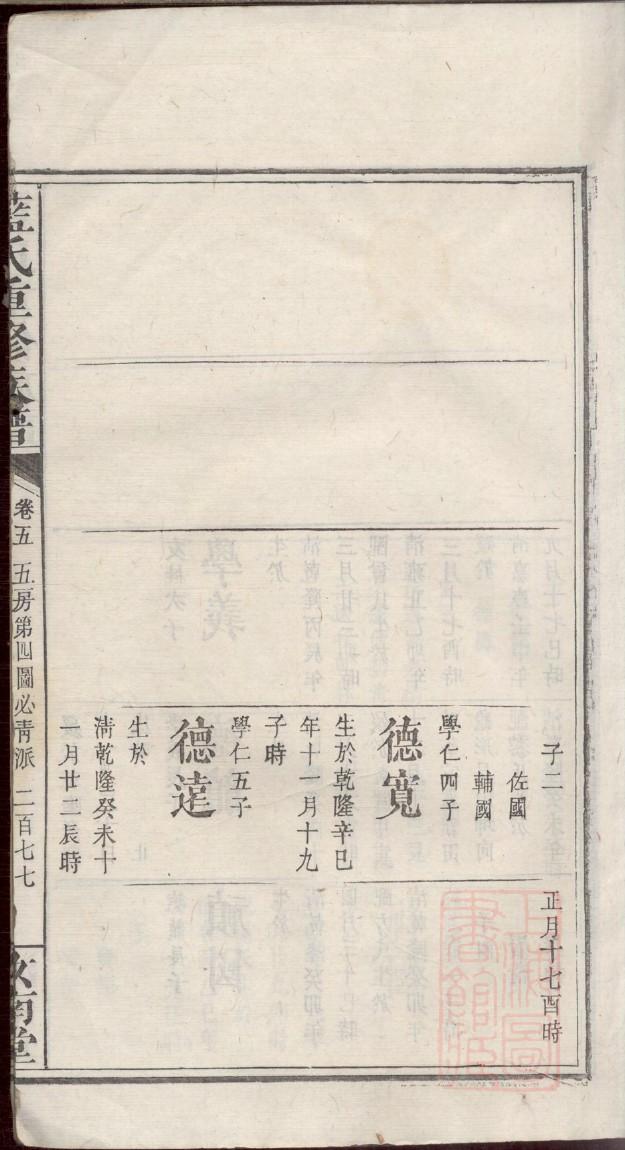 子二
佐國
輔國
學仁四子
德寬
生於乾隆辛巳
年十一月十九
子時
學仁五子
德逹
生於
淸乾隆癸未十
一月廿二辰時
正月十七酉時
藍氏重修族譜
卷五 五房第四圖必靑派 二百七七
汝南堂